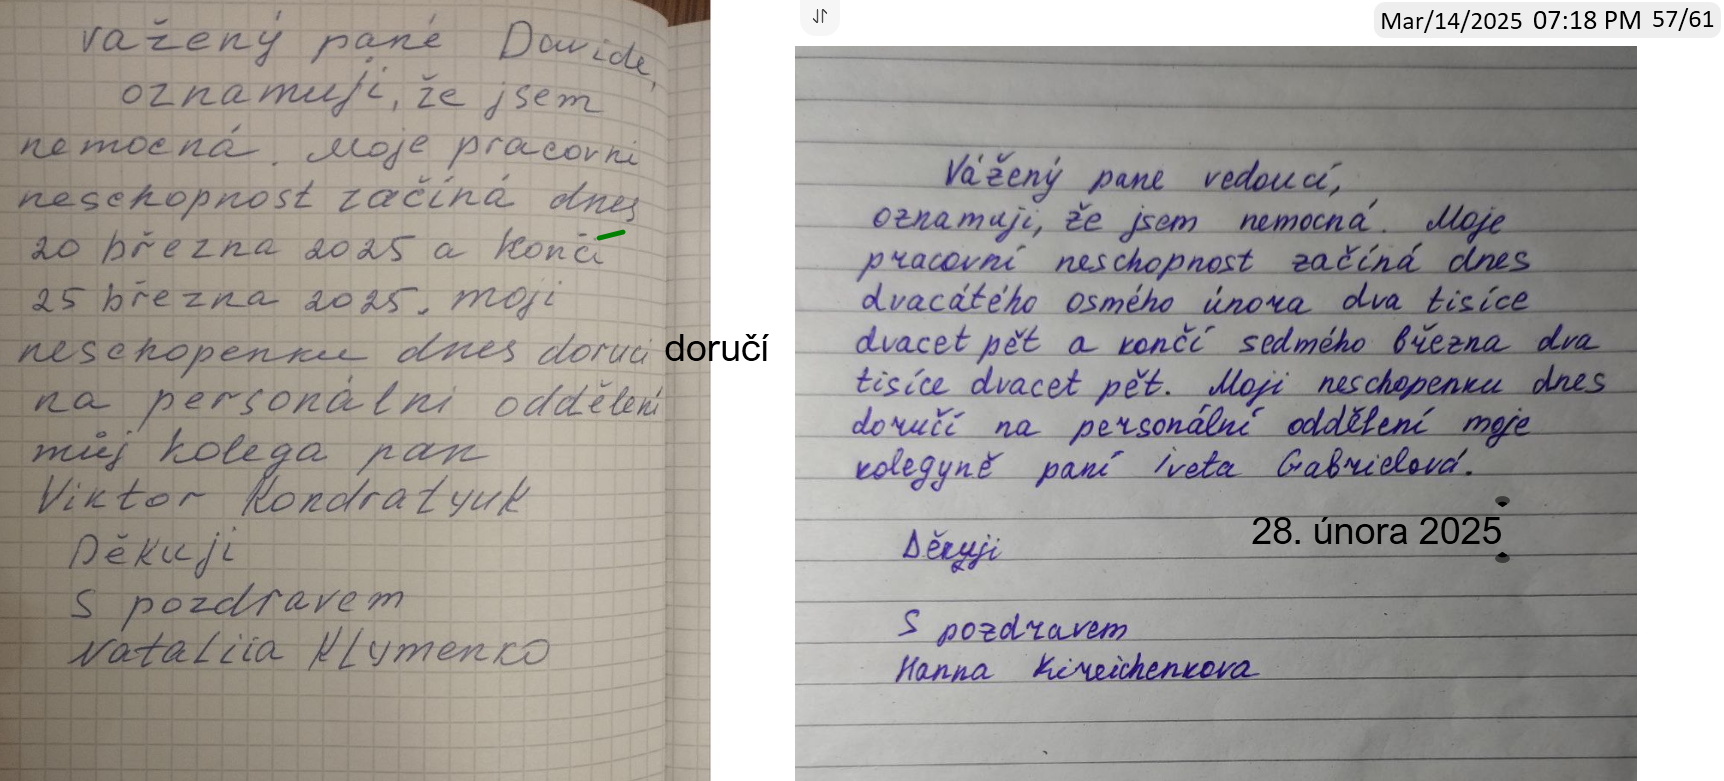 vážený pané Davide,
oznamuji, že jsem
nemocná. Moje pracovni
neschopnost začíná dnes
20 března 2025 a končí
25 března 2025. moji
neschopenku dnes doruci doručí
na personální oddělení
můj kolega pan
Viktor Kondratyuk
Děkuji
S pozdravem
Nataliia Klymenko
Mar/14/2025 07:18 PM 57/61
Vážený pane vedoucí,
oznamuji, že jsem nemocná. Moje
pracovní neschopnost začíná dnes
dvacátého osmého února dva tisíce
dvacet pět a končí sedmého března dva
tisíce dvacet pět. Moji neschopenku dnes
doručí na personální oddělení moje
kolegyně paní Iveta Gabrielová.
28. února 2025
Děkyji
S pozdravem
Hanna Kireichenkova